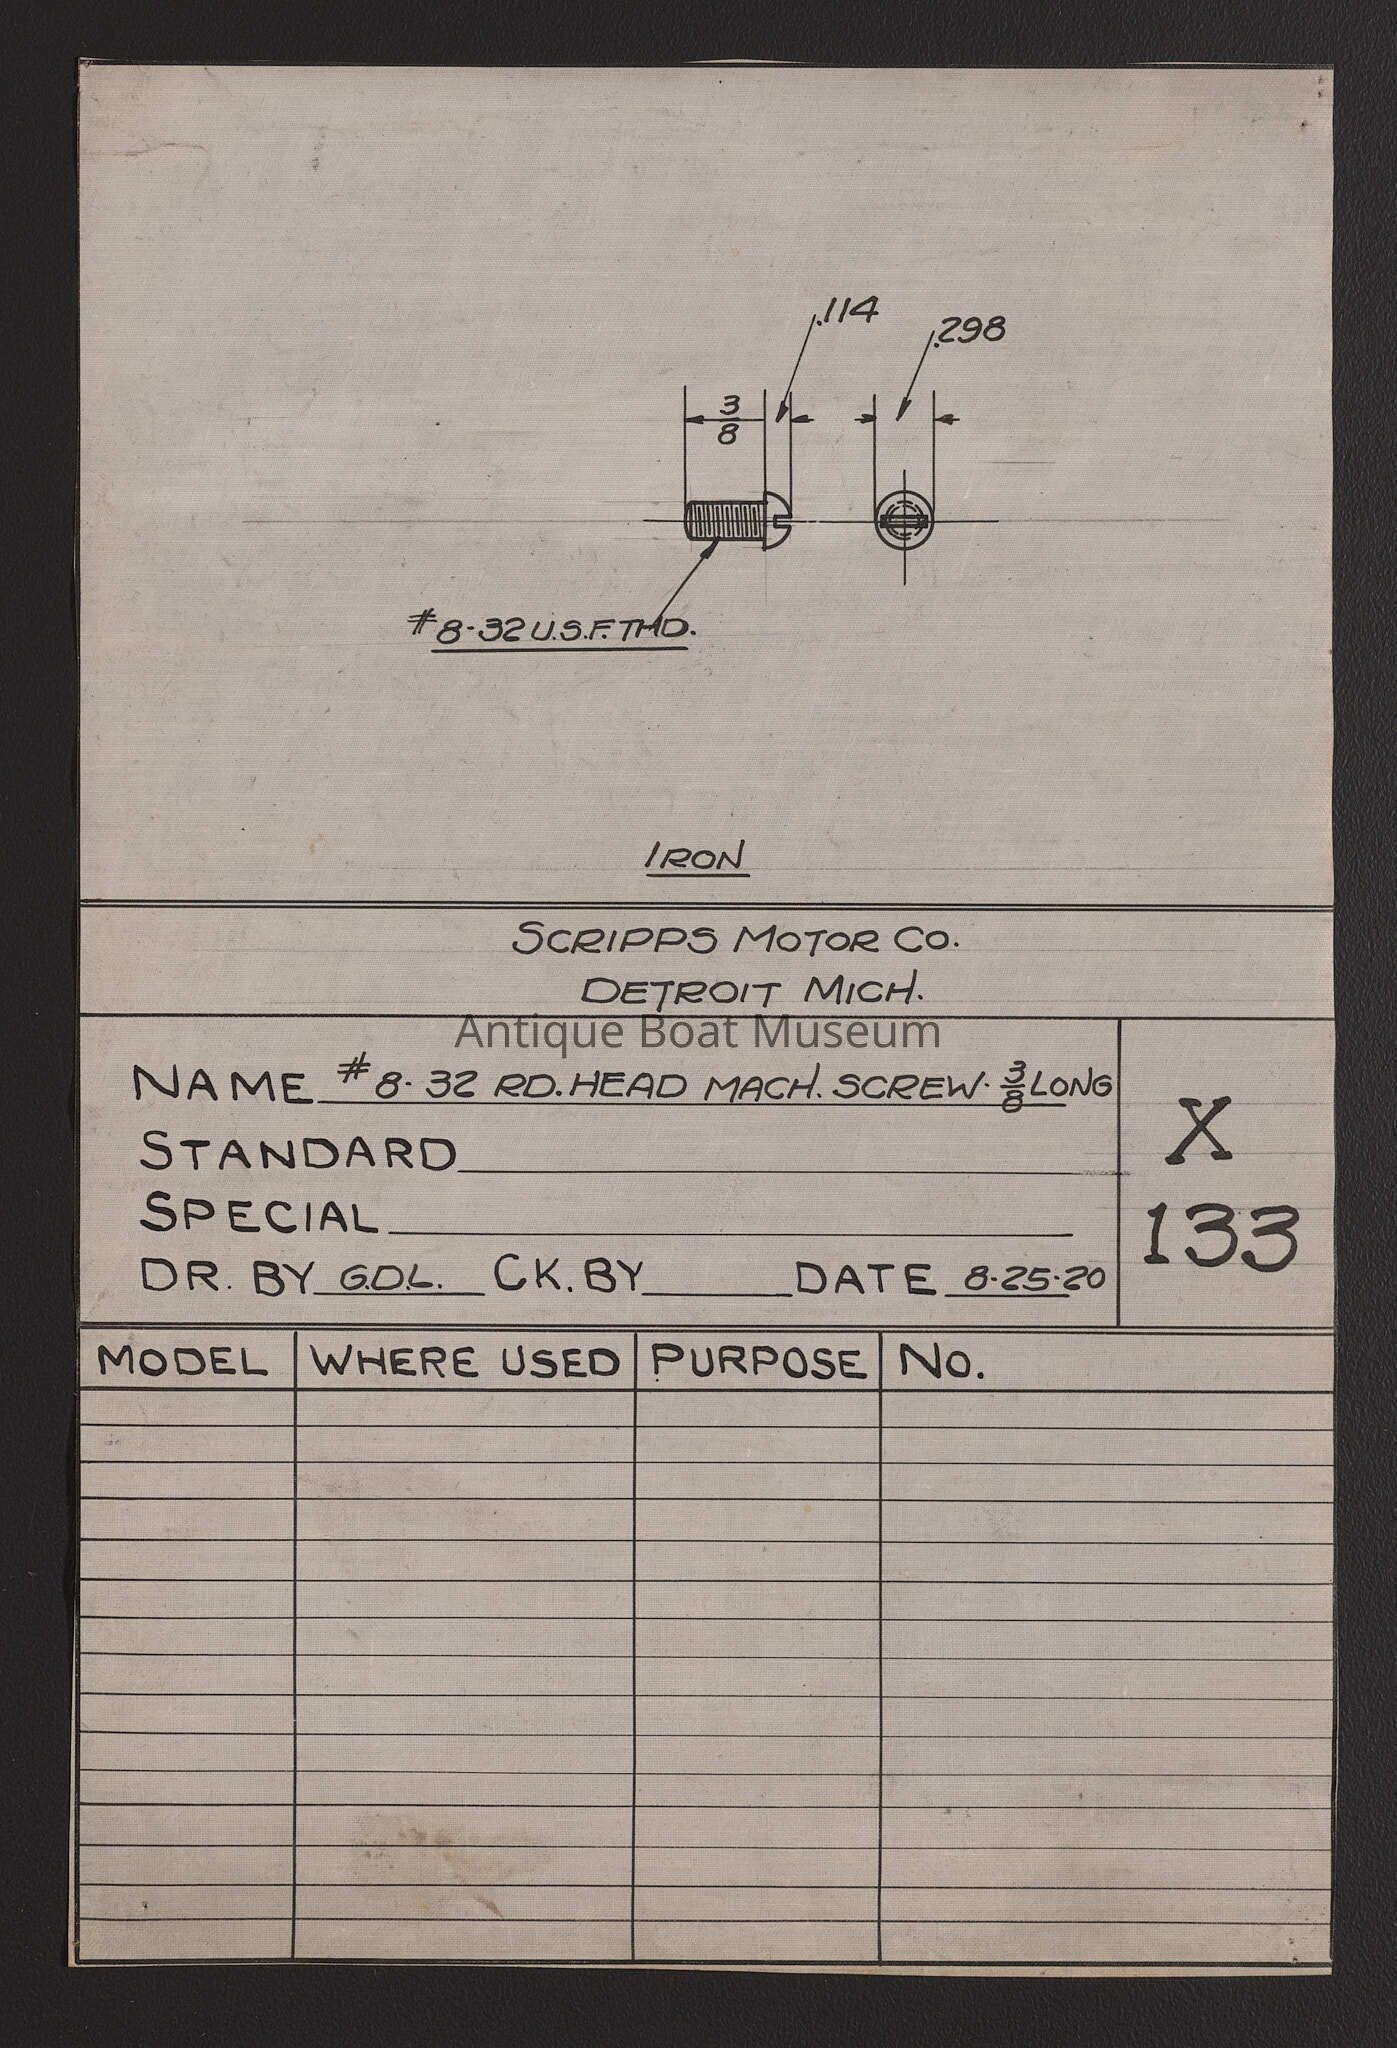 .114
.298
3/8
#8-32 U.S.F. THD.
IRON
SCRIPPS MOTOR CO.
DETROIT MICH.
Antique Boat Museum
NAME #8-32 RD. HEAD MACH. SCREW - 3/8 LONG
STANDARD
SPECIAL
DR. BY G.D.L. CK. BY DATE 8-25-20
X
133
MODEL WHERE USED PURPOSE NO.